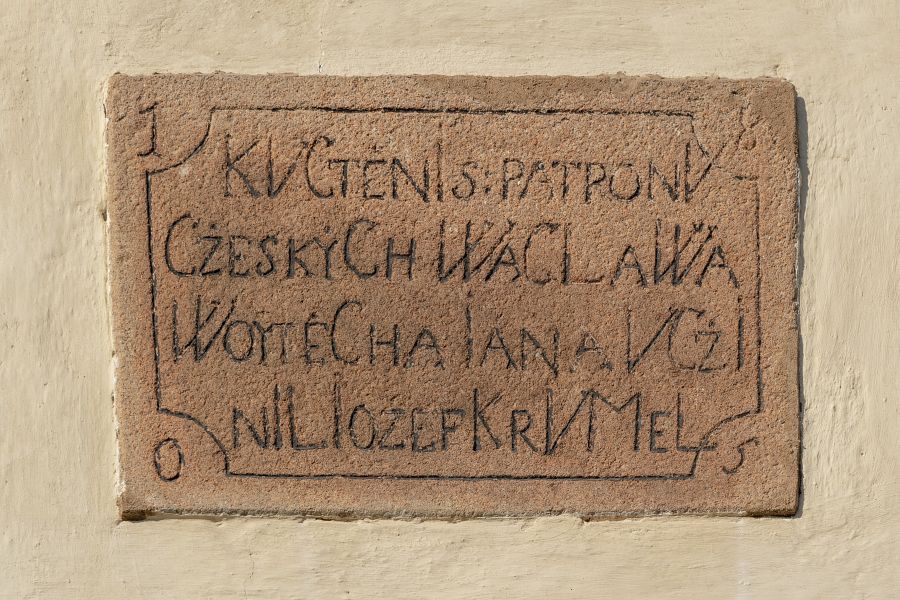 1
KVCTĖNI S: PATRONV
CŻESKÝCH WÁCLAWA
WOYTĖCHA IANA VCŻI
NIL IOZEF KRVMEL
0 5